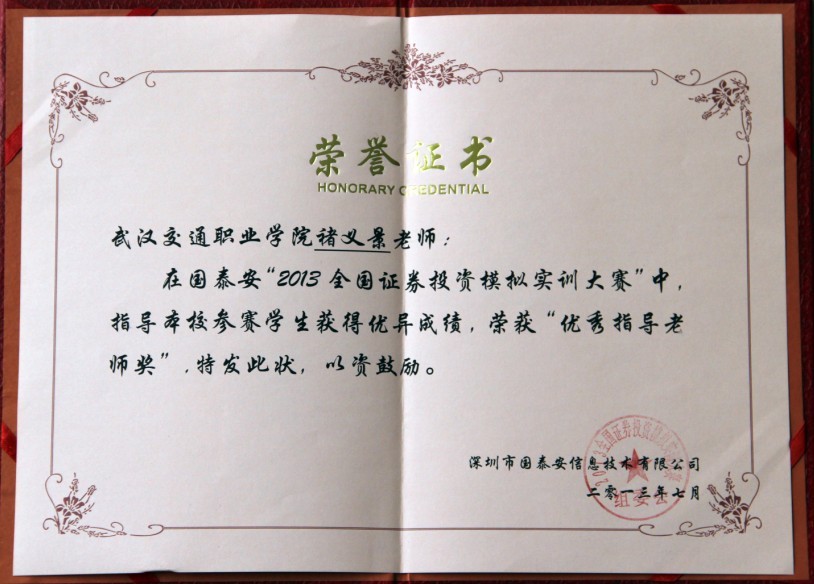 荣誉证书
HONORARY CREDENTIAL
武汉交通职业学院褚义景老师:
在国泰安“2013全国证券投资模拟实训大赛”中,
指导本校参赛学生获得优异成绩,荣获“优秀指导老
师奖”,特发此状,以资鼓励。
深圳市国泰安信息技术有限公司
二零一三年七月
组委会